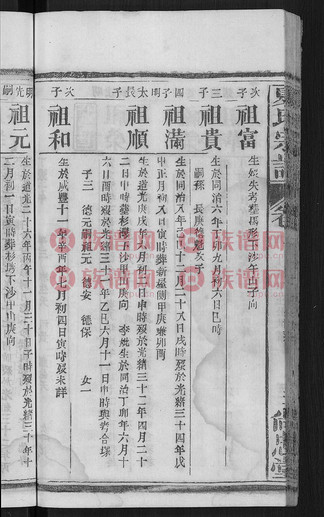 氏宗譜
次子
祖富
生歿失考葬鄢形下沙午山子向
三子
祖貴
生於同治六年丁卯九月初六日巳時
嗣孫
四子
祖滿
生於同治八年己巳十二月二十八日戌時歿於光緒三十四年戊
申正月初八日寅時葬新屋側甲庚兼卯酉
明太長子
祖順
生於道光庚戌九月初三日申時歿於光緒三十二年四月二十
二日申時葬杉下沙甲山庚向 李妣生於同治丁卯年六月十
六日酉時歿於光緒三十一年乙巳六月十一日申時與考合塚
子三 德元嗣祖元 德安 德保 女一
次子
祖和
生於咸豐十一年辛酉年七月初四日寅時歿未詳
明光嗣
祖元
生於道光二十六年丙午十一月三十日子時歿於光緒三十年十
二月初一日時葬杉下沙甲山庚向
族谱网